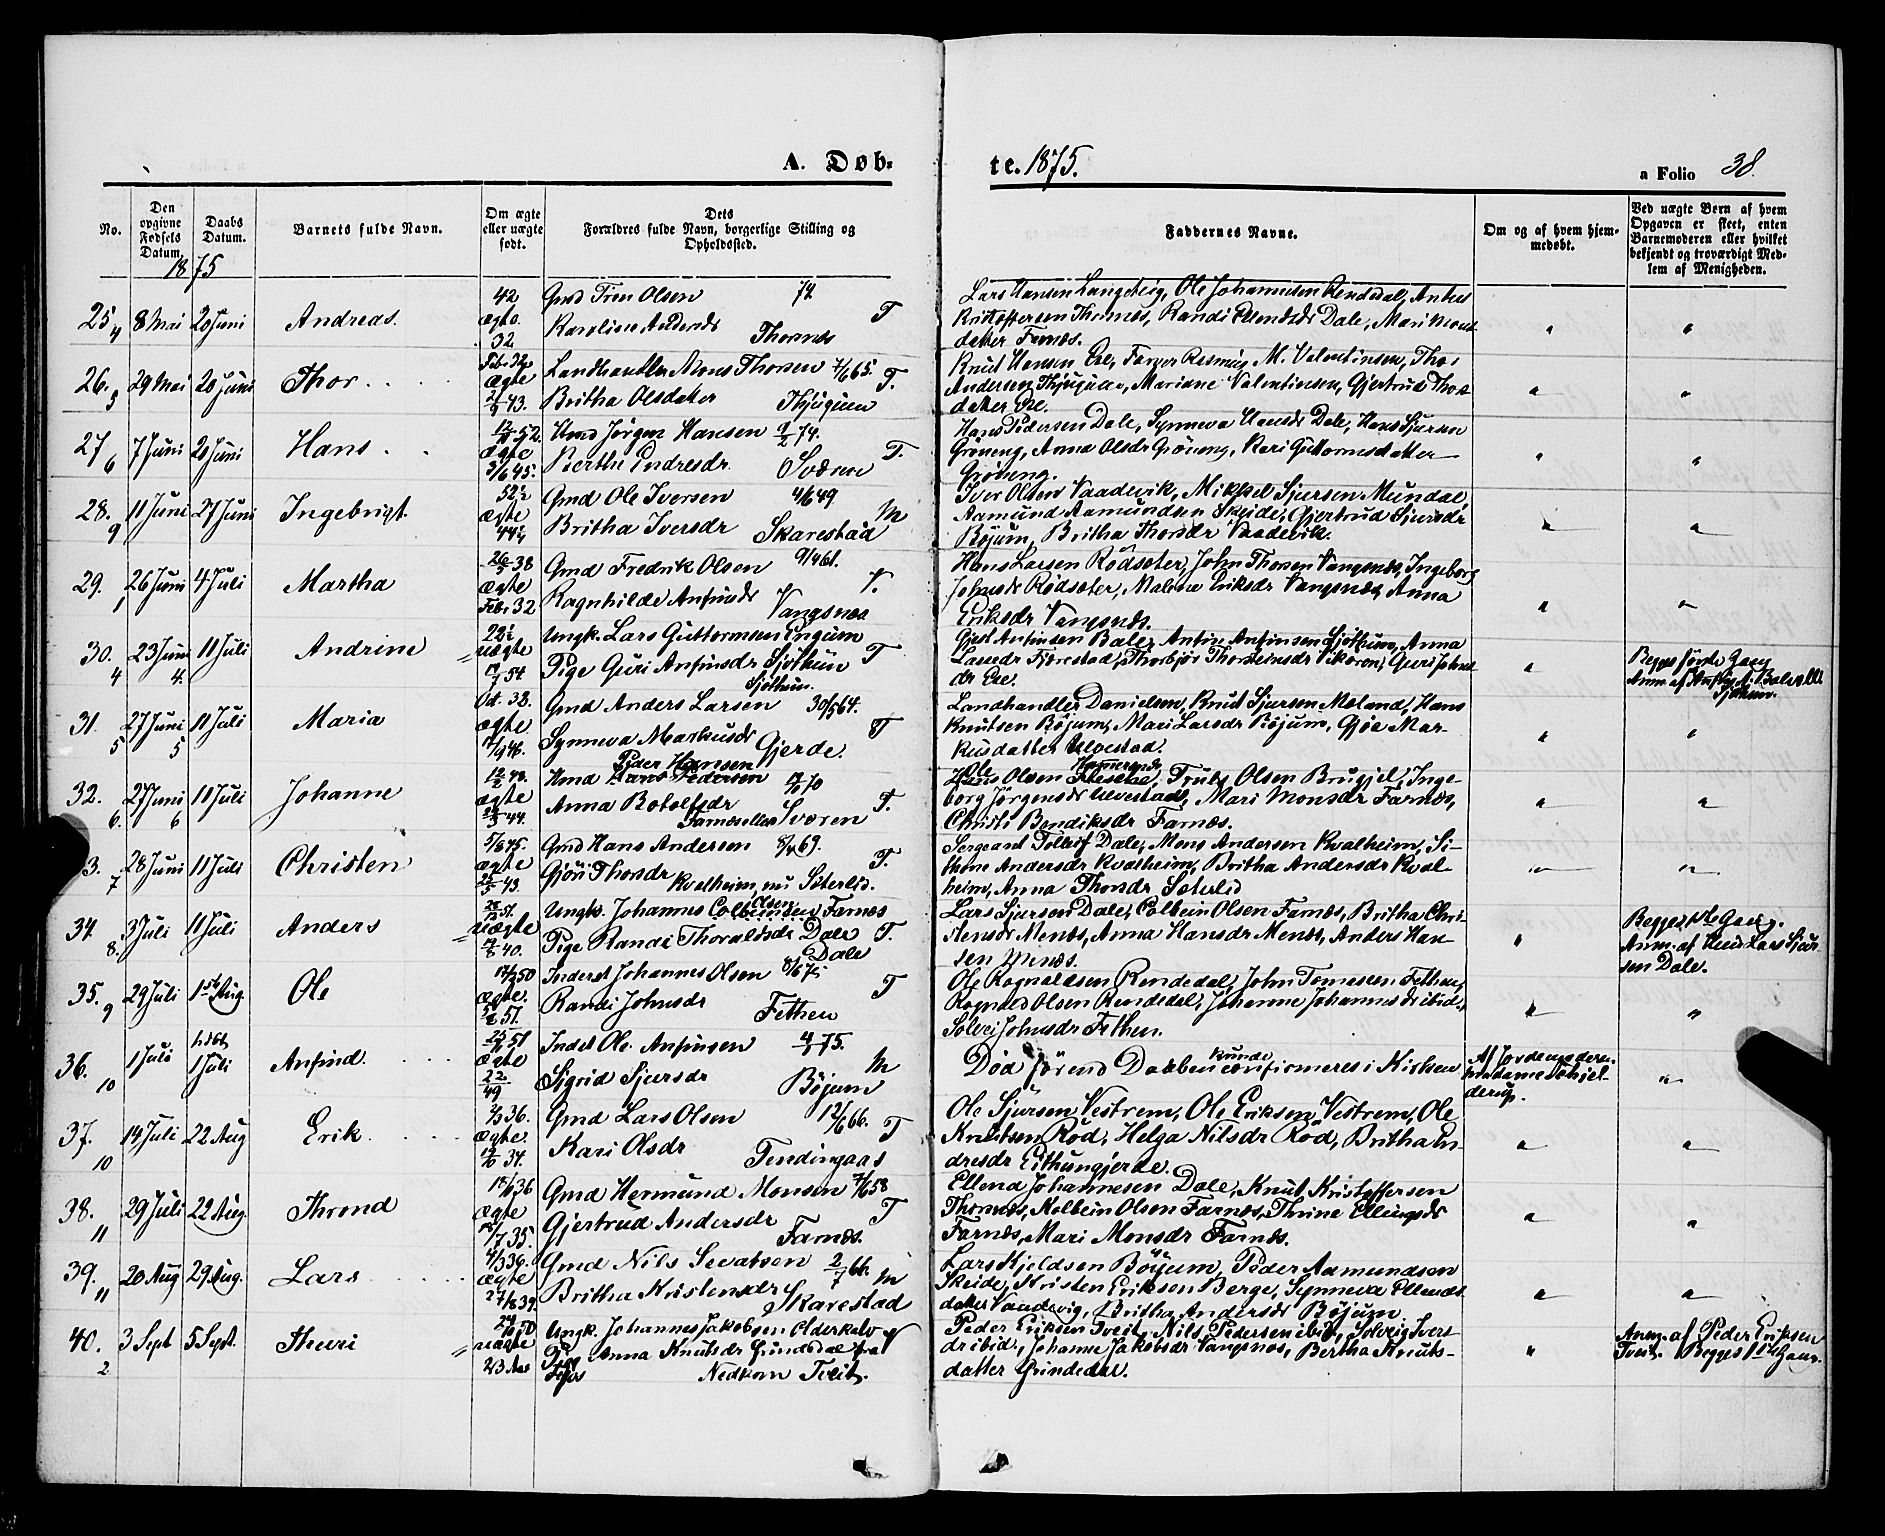 A. Døb-
te. 1875.
a Folio 38.
No.
Den opgivne Fødsels Datum.
Daabs Datum.
1875
Barnets fulde Navn.
Om ægte eller uægte født.
Dets Forældres fulde Navn, borgerlige Stilling og Opholdssted.
Faddernes Navne.
Om og af hvem hjemmedøbt.
Ved uægte Børn af hvem Opgaven er skeet, enten Barnemoderen eller hvilket bekjendt og troværdigt Medlem af Menigheden.
25 4 8 Mai 20 Juni Andreas. 42 ægte 32
Gmd Olsen 74
Karoline Thornæs T
Lars Hansen Langeteig, Ole Johannesen Rendedal, Anders
Kristoffersen Thornæs, Randi Dale, Mari Mons
datter Farnæs.
26. 5 29 Mai 20 Juni Thor ægte 43.
Landhandler Mons Thorsen 7/6 65. T.
Britha Olsdatter
Knut Hansen M. Valentinsen, Thor
Andersen Mariane Valentinsen, Gjertrud Thors
datter Ese.
27 6 7 Juni 20 Juni Hans 52 ægte 3/6 45.
Hmd Jørgen Hansen 74. T.
Berthe Endresdr. Sværen
Hans Pedersen Dale, Synneva Hansdr Dale, Hans Sjursen
Grøneng, Anna Olsdr Grøneng, Kari Guttormsdatter
Grøneng.
28. 9 11 Juni 27 Juni Ingebrigt 52½ ægte 44¼
Gmd Ole Iversen 4/6 49 M
Britha Iversdr Skarestad
Iver Olsen Vaadevik, Mikkel Sjursen Mundal,
Aamund Aamundsen Skeide, Gjertrud Sjursdr
Bøjum, Britha Thorsdr Vaadevik.
29. 1 26 Juni 4 Juli Martha 38 ægte Febr 32
Gmd Fredrik Olsen 9/4 61. V.
Ragnhilde Anfindsdr Vangsnæs
Hans Larsen Rødsæter, John Thorsen Vangsnæs, Ingeborg
Johnsdr Rødsæter, Malene Eriksdr Vangsnæs, Anna
Eriksdr Vangsnæs.
30. 4 23 Juni 4. 11 Juli Andrine 22½ uægte 54
Ungk. Lars Guttormsen Engum
Pige Guri Anfinsdr Sjøthun T
Sjøthun.
Gjest Anfinsen Bale, Antin Anfinsen Sjøthun, Anna
Larsdr Fjærestad, Thorbjør Thorsteinsdr Vikøren, Guri Johns
dr Ese.
Begges første Gang
31. 5 27 Juni 5 11 Juli Maria Oct. 38. ægte 46.
Gmd Anders Larsen 30/5 64. T
Synneva Markusdr Gjerde.
Landhandler Danielsen, Knut Sjursen Meland, Hans
Knutsen Bøjum, Mari Larsdr Bøjum, Gjøa Mar-
kusdatter Ulvestad.
32. 6. 27 Juni 6 11 Juli Johanne ægte 44.
Peder Hansen
Hmd Hans Pedersen 70
Anna Botolfsdr T.
Farnæs eller Sværen
Ole
Hans Olsen Truls Olsen Brugjel, Inge-
borg Jørgensdr Ulvestad, Mari Monsdr Farnæs,
Christi Bendiksdr Farnæs.
3. 7 28 Juni 11 Juli Christen 5/6 45. ægte 43.
Gmd Hans Andersen 8/4 69. T.
Gjøri Thorsdr Kvalheim, nu Seterlid.
Sergeant Tollef Dale, Mons Andersen Kvalheim, Si-
Andersdr Kvalheim, Britha Andersdr Kval-
heim, Anna Thorsdr Seterlid
34. 8. 3 Juli 11 Juli Anders 51. uægte 40.
Ungk. Johannes Olsen Colbeinsen Farnæs
Pige Randi Thoraldsdr Dale T.
Dale
Lars Sjursen Dale, Colbein Olsen Farnæs, Britha Chri-
stensdr Menæs, Anna Hansdr Menæs, Anders Han-
sen Menæs.
Begges 1ste Gang.
Anm. af Lars Sjur-
sen Dale.
35. 9 29 Juli 1ste Aug. Ole 50 ægte. 51.
Inderst Johannes Olsen T
Randi Johnsdr Fethen
Ole Ragnaldsen Rendedal, John Tomasen Fethen,
Ragnald Olsen Rendedal, Johanne Johannesdr ibid.,
Solvei Johnsdr Fethen.
36. 10 1 Juli hdbt 1 Juli Anfind. 51 ægte 49
Inderst Ole Anfinsen 75. M
Sigrid Sjursdr Bøjum
Død førend Daaben kunde confirmeres i Kirken
Af Jordemoderen
Madame Schjel-
derup.
37. 10 14 Juli 22 Aug Erik 36. ægte. 34.
Gmd Lars Olsen 12/6 66. T
Kari Olsdr Tendingaas
Ole Sjursen Vestrem, Ole Eriksen Vestrem, Ole
Knutsen Rød, Helga Nilsdr Rød, Britha En-
dresdr Eithungjerde.
38. 11 29 Juli 22 Aug. Thrond 36 ægte 35.
Gmd Hermund Monsen 7/6 58 T
Gjertrud Andersdr Farnæs.
Ellend Johannesen Dale, Knut Kristoffersen
Thornæs, Kolbein Olsen Farnæs, Thrine Ellingsdr
Farnæs, Mari Monsdr Farnæs.
39. 11 20 Aug 29 Aug. Lars 4/3 36. ægte 27/8 39.
Gmd Nils Sevatsen 2/7 66. M
Britha Kristensdr Skarestad
Lars Kjeldsen Bøjum, Peder Aamundsen
Skeide, Kristen Eriksen Berge, Synneva Ellends
datter Vaadevig, Britha Andersdr Bøjum
40. 2 3 Sept 5 Sept. Thuri 50 uægte 23 Aar
Ungk. Johannes Jakobsen Olderkalv V
Pige Anna Knutsdr Grindedal fra
Nedkom Tveit.
Peder Eriksen Tveit, Nils Pedersen ibid, Solveig Ivers
dr ibid, Johanne Jakobsdr Vangsnæs, Bertha Knuts-
datter Grindedal.
Anm. af Peder Eriksen
Tveit. Begges 1ste Gang.